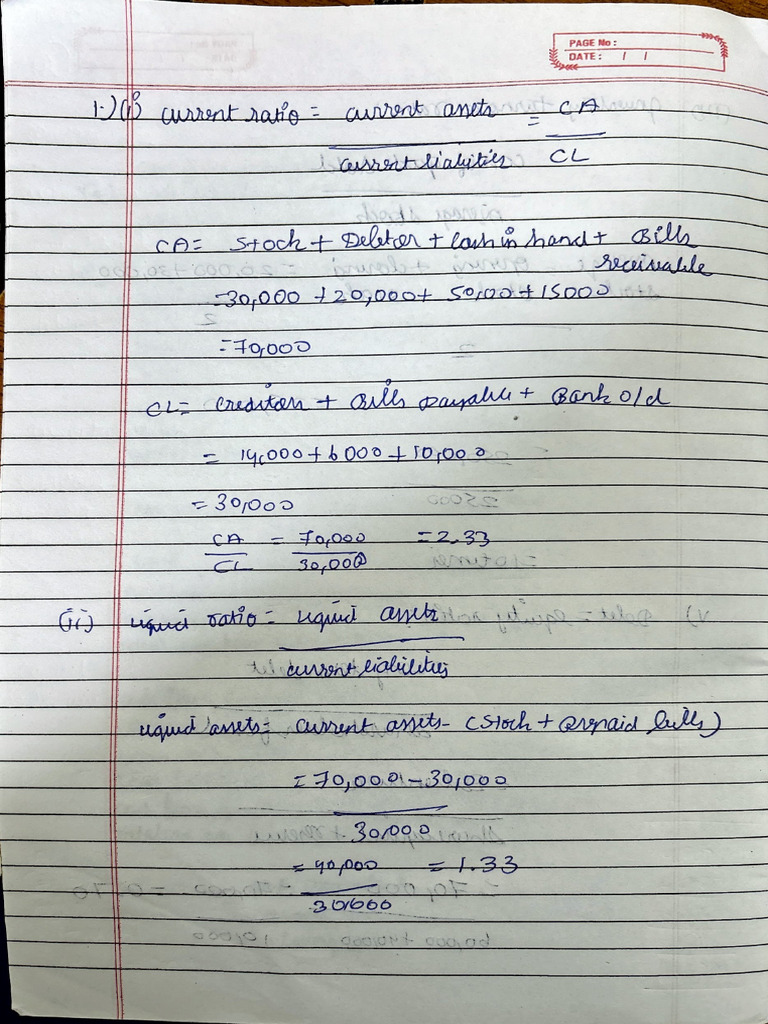 PAGE No :
DATE : / /
1.) (i) current ratio = current assets = CA
current liabilities CL
CA = Stock + Debtor + Cash in hand + Bills
receivable
= 30,000 + 20,000 + 50,00 + 15000
= 70,000
CL = Creditors + Bills Payable + Bank o/d
= 14,000 + 6000 + 10,000
= 30,000
CA = 70,000 = 2.33
CL 30,000
(ii) Liquid ratio = Liquid assets
current liabilities
Liquid assets = Current assets - (Stock + Prepaid bills)
= 70,000 - 30,000
30,000
= 40,000 = 1.33
30,000